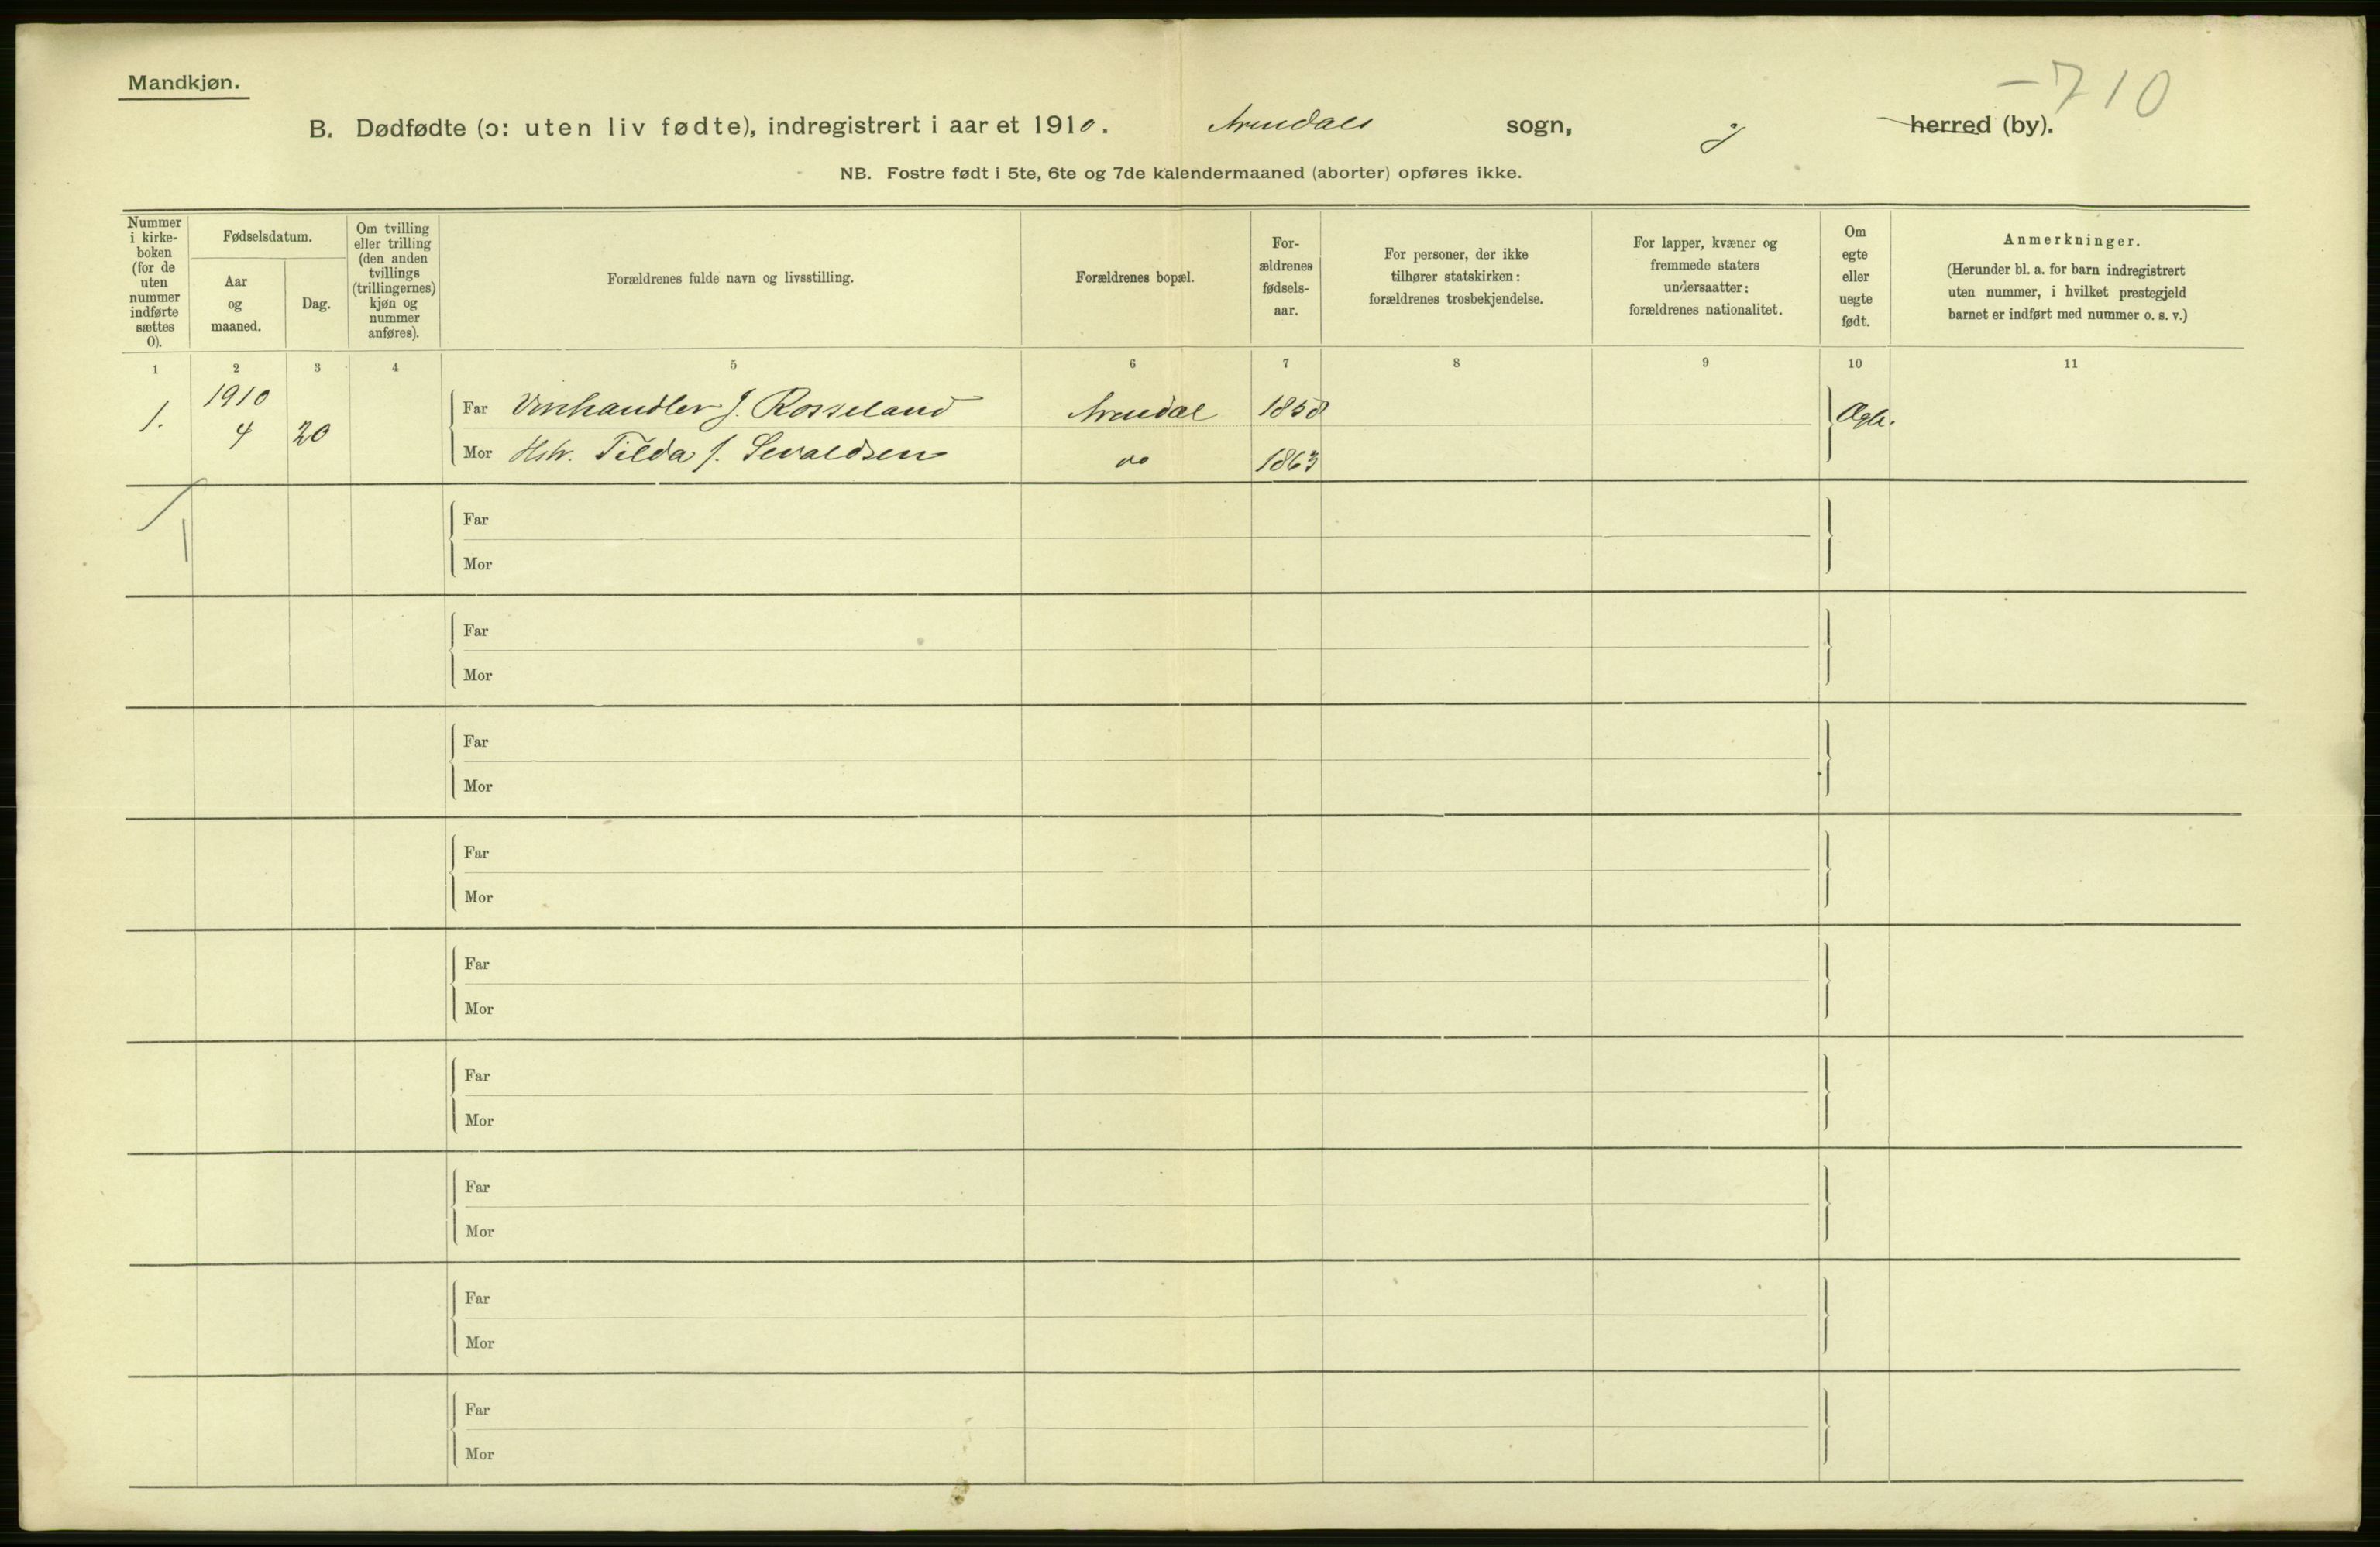 Mandkjøn.
-710
B. Dødfødte (ɔ: uten liv fødte), indregistrert i aaret 1910. Arendals sogn, og herred (by).
NB. Fostre født i 5te, 6te og 7de kalendermaaned (aborter) opføres ikke.
Nummer i kirke-boken (for de uten nummer indførte sættes 0).
Fødselsdatum.
Aar og maaned.
Dag.
Om tvilling eller trilling (den anden tvillings (trillingernes) kjøn og nummer anføres).
Forældrenes fulde navn og livsstilling.
Forældrenes bopæl.
For-ældrenes fødsels-aar.
For personer, der ikke tilhører statskirken: forældrenes trosbekjendelse.
For lapper, kvæner og fremmede staters undersaatter: forældrenes nationalitet.
Om egte eller uegte født.
Anmerkninger.
(Herunder bl. a. for barn indregistrert uten nummer, i hvilket prestegjeld barnet er indført med nummer o. s. v.)
1 2 3 4 5 6 7 8 9 10 11
1. 1910 4 20 Far Vinhandler J. Rosseland Arendal 1858 Ægte.
Mor Hstr. Tilda f. Sevaldsen do 1863
Far
Mor
Far
Mor
Far
Mor
Far
Mor
Far
Mor
Far
Mor
Far
Mor
Far
Mor
Far
Mor